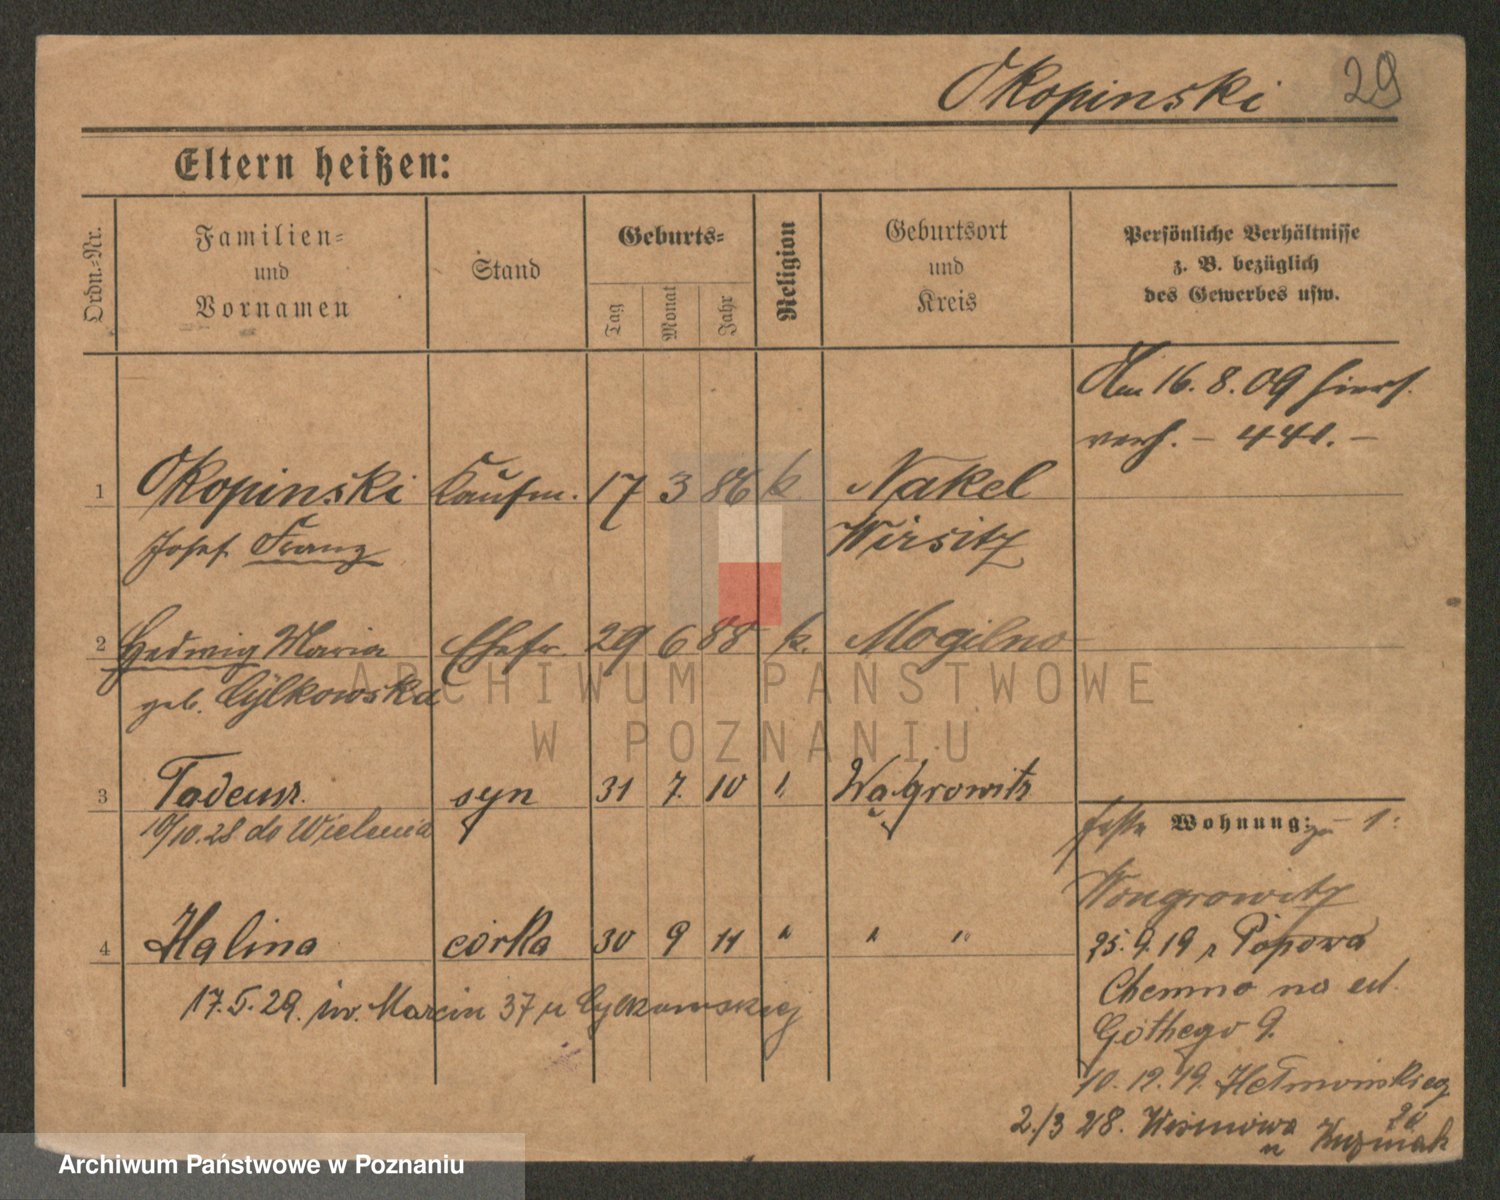 Okopinski 29
Eltern heißen:
Ordn.-Nr.
Familien-
und
Vornamen
Stand
Geburts-
Tag
Monat
Jahr
Religion
Geburtsort
und
Kreis
Persönliche Verhältnisse
z. B. bezüglich
des Gewerbes usw.
Am 16. 8. 09 hiers.
verh. – 441. –
1 Okopinski Kaufm. 17 3 86 k. Nakel
Josef Franz Wirsitz
2 Hedwig Maria Ehefr. 29 6 88 k. Mogilno
geb. Cylkowska
3 Tadeusz. syn 31 7. 10 Wągrowitz
10/10.28 do Wielunia
Wohnung: 1.
Wongrowitz
4 Halina córka 30 9 11 " " "
25. 9. 19 Popowa
17.5.29. św. Marcin 37 u Cylkowskiej
Chemno na ul.
Góthego 9.
10. 12. 19.
2./3 28.
ARCHIWUM PAŃSTWOWE
W POZNANIU
Archiwum Państwowe w Poznaniu